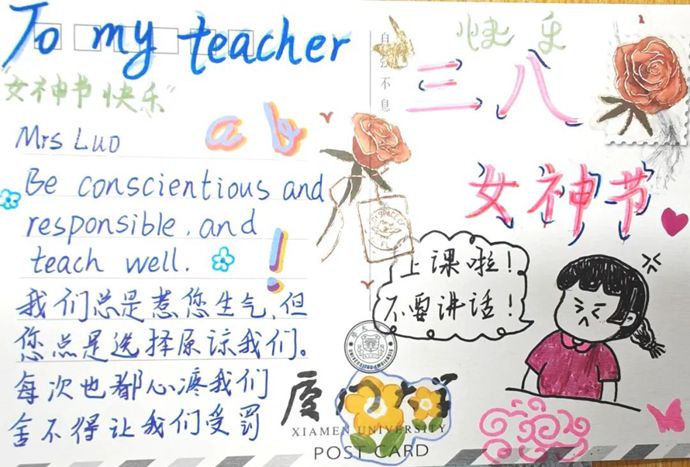 To my teacher
"女神节快乐"
Mrs Luo
a b
Be conscientious and
responsible. and
teach well. !
我们总是惹您生气,但
您总是选择原谅我们。
每次也都心疼我们
舍不得让我们受罚
不息
快乐
三八
女神节
上课啦!
不要讲话!
厦
XIAMEN UNIVERSITY
POST CARD